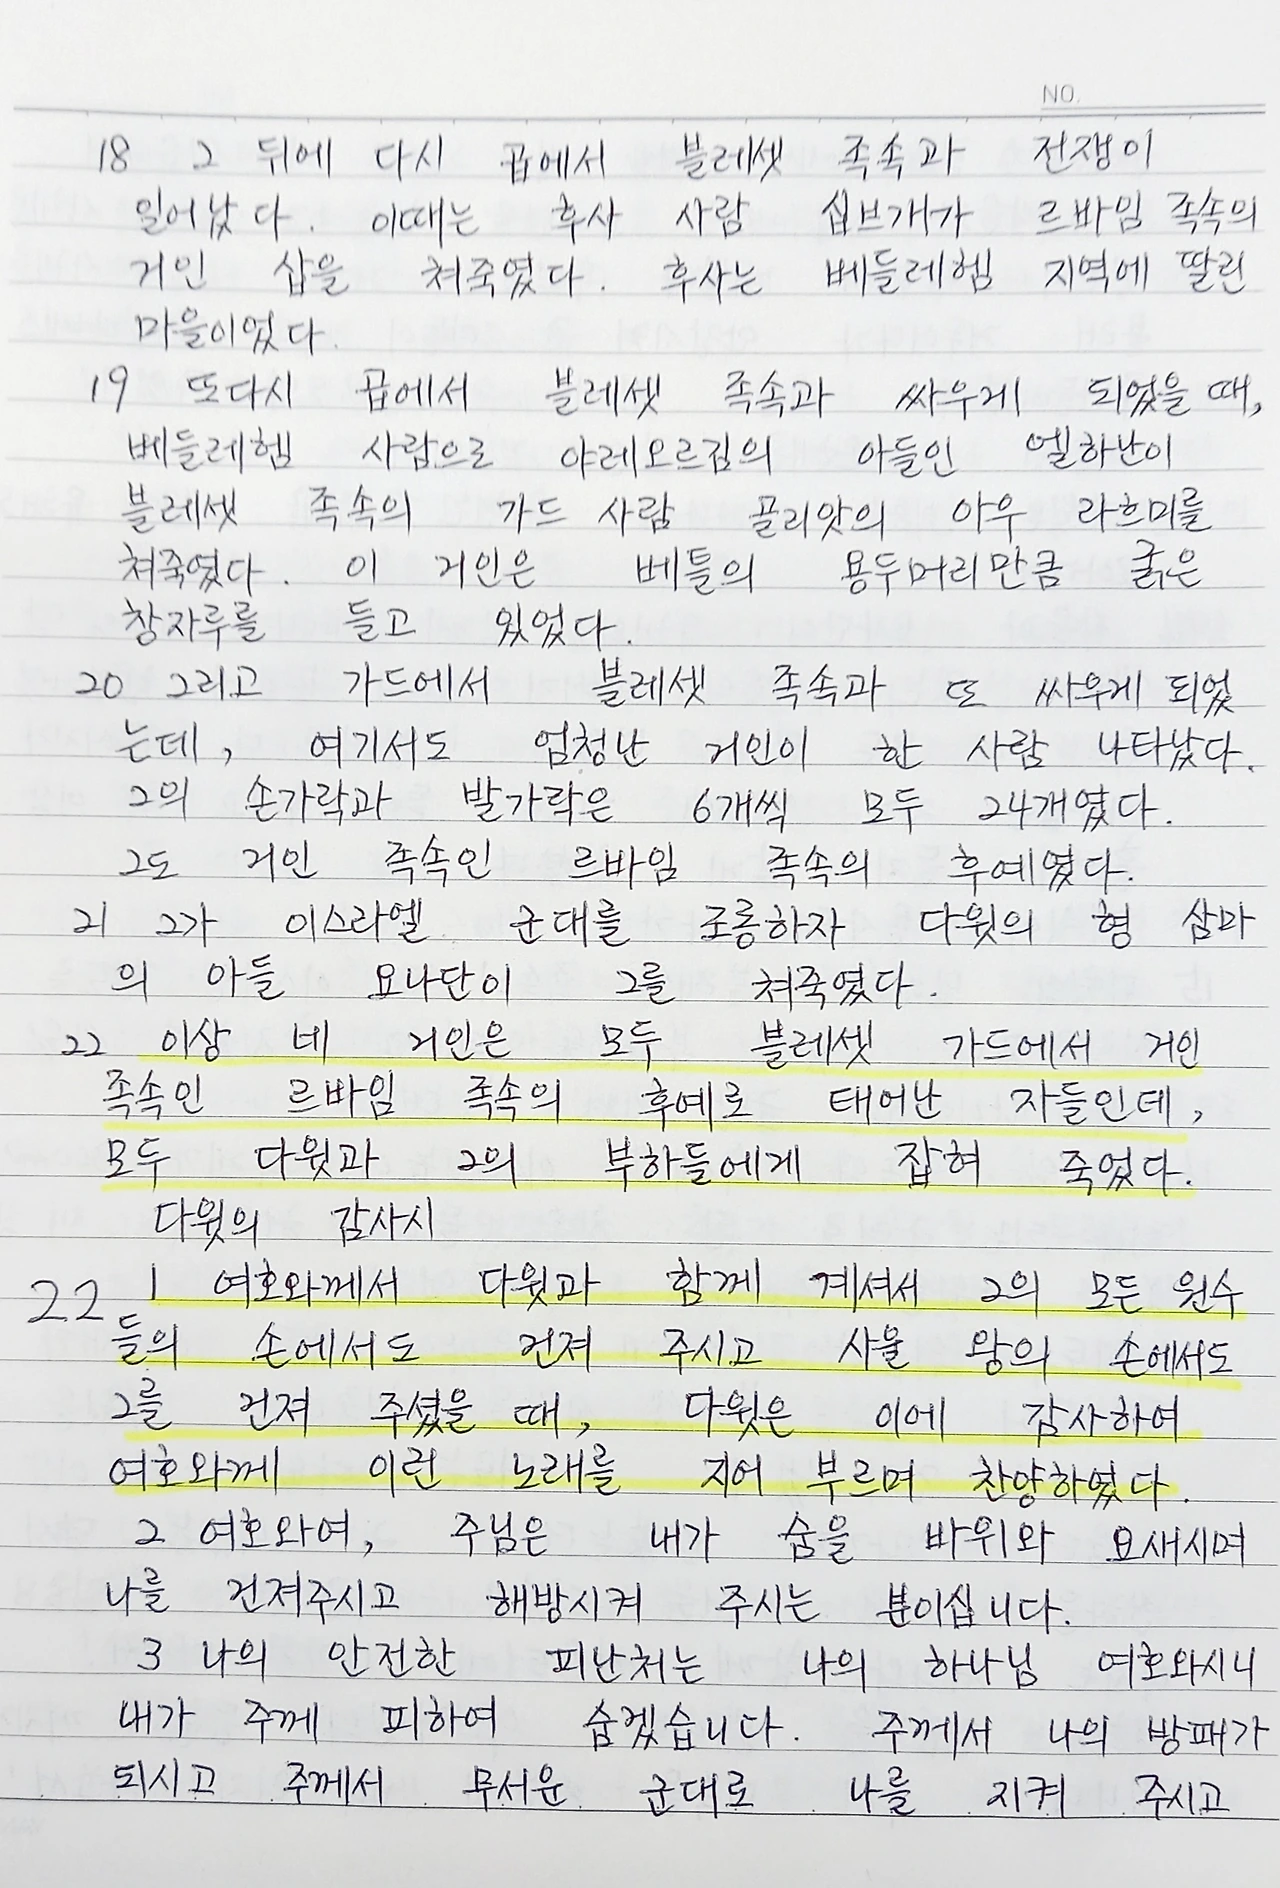 NO.
18 그 뒤에 다시 곱에서 블레셋 족속과 전쟁이
일어났다. 이때는 후사 사람 십브개가 르바임 족속의
거인 삽을 쳐죽였다. 후사는 베들레헴 지역에 딸린
마을이었다.
19 또다시 곱에서 블레셋 족속과 싸우게 되었을 때,
베들레헴 사람으로 야레오르김의 아들인 엘하난이
블레셋 족속의 가드 사람 골리앗의 아우 라흐미를
쳐죽였다. 이 거인은 베틀의 용두머리만큼 굵은
창자루를 들고 있었다.
20 그리고 가드에서 블레셋 족속과 또 싸우게 되었
는데, 여기서도 엄청난 거인이 한 사람 나타났다.
그의 손가락과 발가락은 6개씩 모두 24개였다.
그도 거인 족속인 르바임 족속의 후예였다.
21 그가 이스라엘 군대를 조롱하자 다윗의 형 삼마
의 아들 요나단이 그를 쳐죽였다.
22 이상 네 거인은 모두 블레셋 가드에서 거인
족속인 르바임 족속의 후예로 태어난 자들인데,
모두 다윗과 그의 부하들에게 잡혀 죽었다.
다윗의 감사시
22 1 여호와께서 다윗과 함께 계셔서 그의 모든 원수
들의 손에서도 건져 주시고 사울 왕의 손에서도
그를 건져 주셨을 때, 다윗은 이에 감사하여
여호와께 이런 노래를 지어 부르며 찬양하였다.
2 여호와여, 주님은 내가 숨을 바위와 요새시며
나를 건져주시고 해방시켜 주시는 분이십니다.
3 나의 안전한 피난처는 나의 하나님 여호와시니
내가 주께 피하여 숨겠습니다. 주께서 나의 방패가
되시고 주께서 무서운 군대로 나를 지켜 주시고